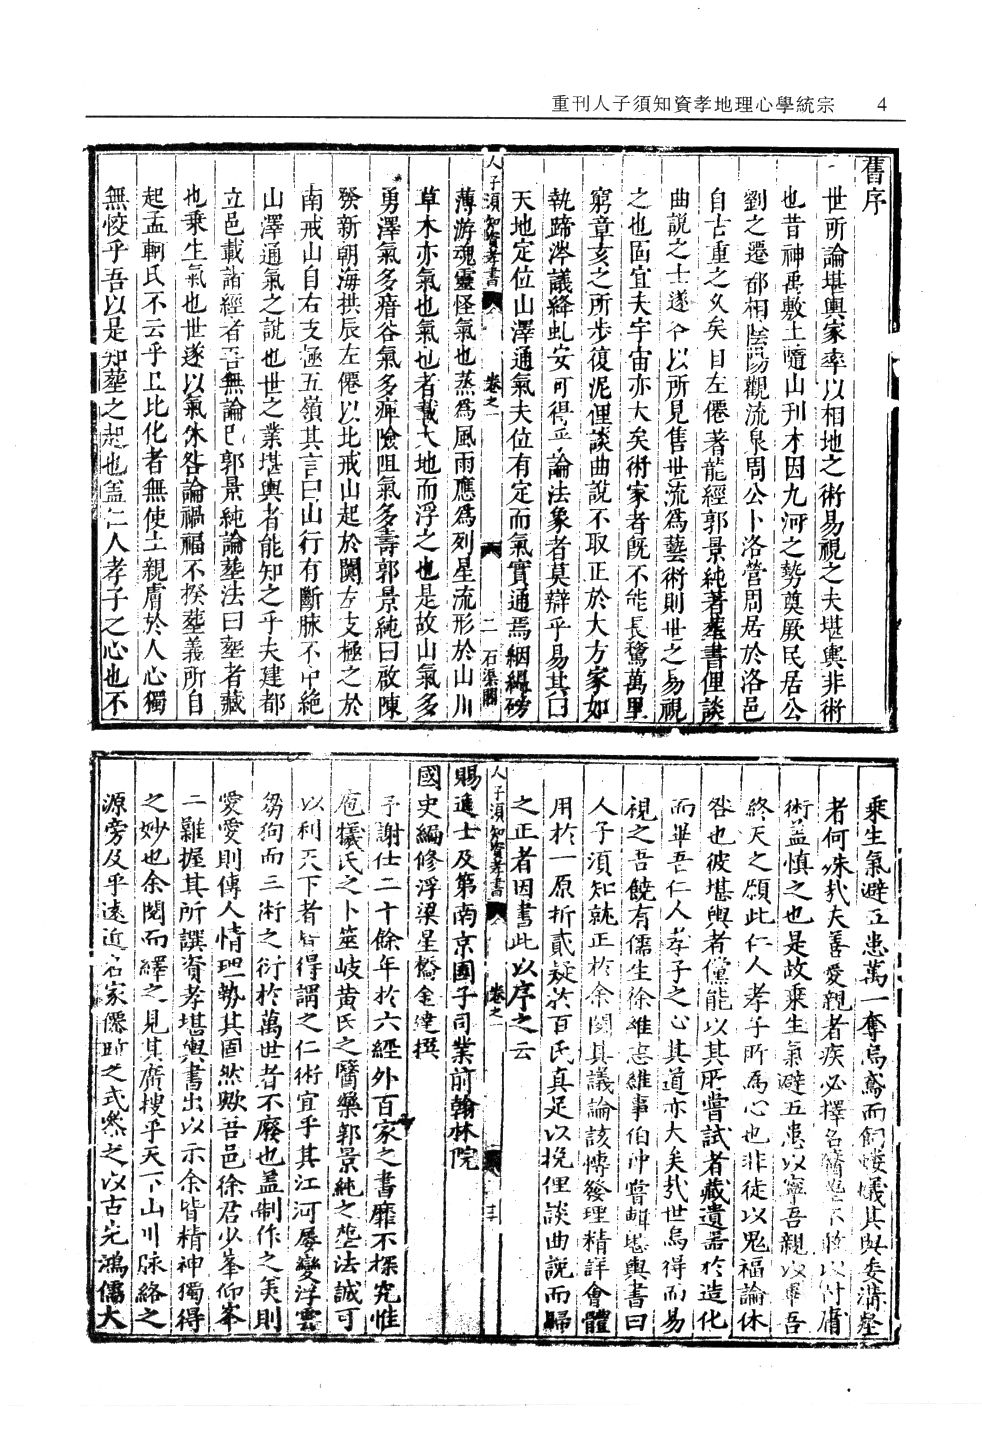 重刊人子須知資孝地理心學統宗 4
舊序
世所論堪輿家率以相地之術易視之夫堪輿非術
也昔神禹敷土隨山刊木因九河之勢奠厥民居公
劉之遷豳相陰陽觀流泉周公卜洛營周居於洛邑
自古重之久矣自左僊著龍經郭景純著葬書俚談
曲說之士遂各以所見售世流為藝術則世之易視
之也固宜夫宇宙亦大矣術家者旣不能長騖萬里
窮章亥之所步復泥俚談曲說不取正於大方家如
執蹄涔議絳虬安可得乎論法象者莫辯乎易其曰
天地定位山澤通氣夫位有定而氣實通焉絪縕磅
薄游魂靈怪氣也蒸為風雨應為列星流形於山川
草木亦氣也氣也者載大地而浮之也是故山氣多
勇澤氣多瘖谷氣多痺險阻氣多壽郭景純曰啟陳
祭新朝海拱辰左僊以北戒山起於闕左支極之於
南戒山自右支極五嶺其言曰山行有斷脉不中絕
山澤通氣之說也世之業堪輿者能知之乎夫建都
立邑載諸經者吾無論已郭景純論塟法曰塟者藏
也乘生氣也世遂以氣休咎論禍福不揆塟義所自
起孟軻氏不云乎且比化者無使土親膚於人心獨
無恔乎吾以是知塟之起也盖仁人孝子之心也不
人子須知資孝書 卷之一 二 石渠閣
乘生氣避五患萬一奪烏鳶而飼螻蟻其與委溝壑
者何殊哉夫善愛親者疾必擇名醫塟不將以付庸
術盖慎之也是故乘生氣避五患以寧吾親以畢吾
終天之願此仁人孝子所為心也非徒以鬼福論休
咎也彼堪輿者儻能以其所嘗試者藏遺器於造化
而畢吾仁人孝子之心其道亦大矣哉世烏得而易
視之吾饒有儒生徐維志維事伯仲嘗輯堪輿書曰
人子須知就正於余閱其議論該博發理精詳會體
用於一原折貳疑於百氏真足以挽俚談曲說而歸
之正者因書此以序之云
賜進士及第南京國子司業前翰林院
國史編修浮梁星橋金達撰
人子須知資孝書 卷之一 三
予謝仕二十餘年於六經外百家之書靡不探究惟
庖犧氏之卜筮岐黄氏之醫藥郭景純之塟法誠可
以利天下者皆得謂之仁術宜乎其江河屢變浮雲
芻狗而三術之衍於萬世者不廢也盖制作之美則
愛愛則傳人情理勢其固然歟吾邑徐君少峯仰峯
二難握其所譔資孝堪輿書出以示余皆精神獨得
之妙也余閱而繹之見其廣搜乎天下山川脉絡之
源旁及乎遠近名家僊師之式叅之以古先鴻儒大